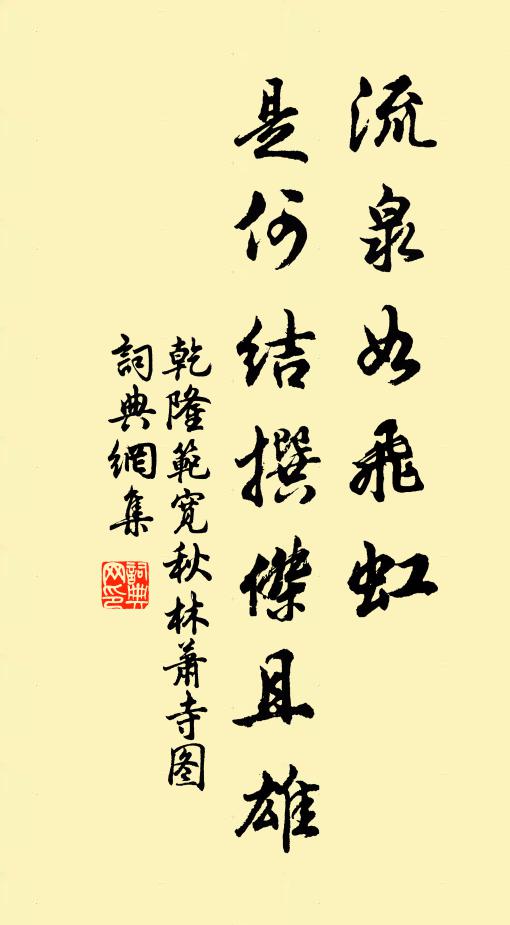 流泉如飛虹
是何結撰傑且雄
乾隆範寬秋林蕭寺图
詞典網集
詞典网印